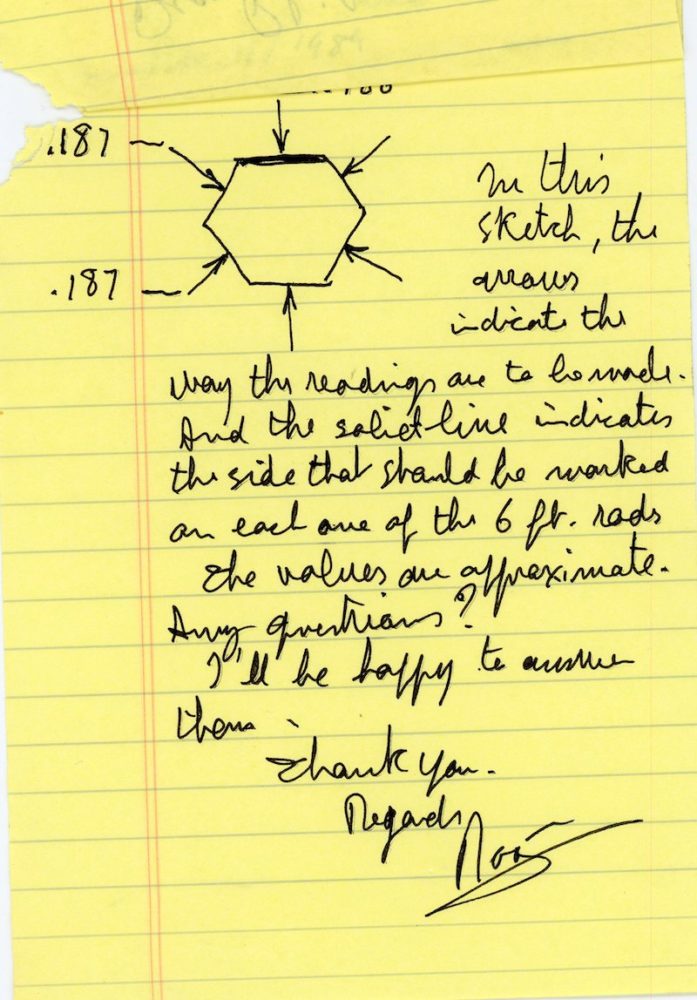 .187
.187
In this
sketch, the
arrows
indicate the
way the readings are to be made.
And the solid line indicates
the side that should be marked
on each one of the 6 ft. rods
The values are approximate.
Any questions?
I'll be happy to answer
them
Thank you.
Regards